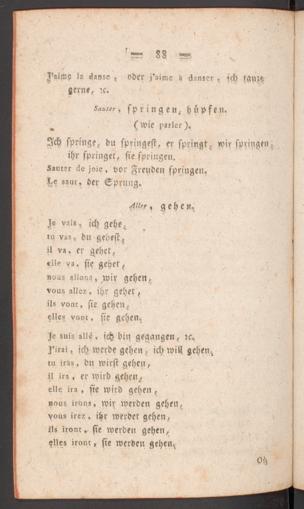 — 88 —
J'aime la danse, oder j'aime à danser, ich tanze
gerne, ꝛc.
Sauter, springen, hüpfen.
(wie parler).
Ich springe, du springest, er springt, wir springen,
ihr springet, sie springen.
Sauter de joie, vor Freuden springen.
Le saut, der Sprung.
Aller, gehen.
Je vais, ich gehe,
tu vas, du gehest,
il va, er gehet,
elle va, sie gehet,
nous allons, wir gehen,
vous allez, ihr gehet,
ils vont, sie gehen,
elles vont, sie gehen.
Je suis allé, ich bin gegangen, ꝛc.
J'irai, ich werde gehen, ich will gehen,
tu iras, du wirst gehen,
il ira, er wird gehen,
elle ira, sie wird gehen,
nous irons, wir werden gehen,
vous irez, ihr werdet gehen,
ils iront, sie werden gehen,
elles iront, sie werden gehen.